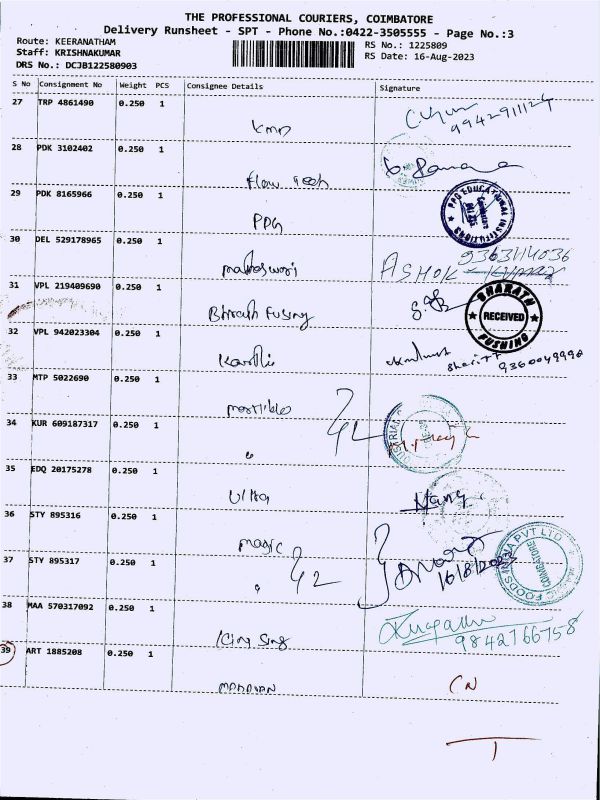 THE PROFESSIONAL COURIERS, COIMBATORE
Delivery Runsheet - SPT - Phone No.:0422-3505555 - Page No.:3
Route: KEERANATHAM
Staff: KRISHNAKUMAR
DRS No.: DCJB122580903
RS No.: 1225809
RS Date: 16-Aug-2023
S No Consignment No Weight PCS Consignee Details Signature
27 TRP 4861490 0.250 1
kmp
9942911124
28 PDK 3102402 0.250 1
flow Tech
29 PDK 8165966 0.250 1
PPG
PPG EDUCATIONAL INSTITUTIONS
Coimbatore
30 DEL 529178965 0.250 1
maheswari
ASHOK
31 VPL 219409690 0.250 1
Bharath Fusing
BHARATH
RECEIVED
FUSHING
32 VPL 942023304 0.250 1
Karthi
9360049998
33 MTP 5022690 0.250 1
34 KUR 609187317 0.250 1
"
35 EDQ 20175278 0.250 1
Ultra
36 STY 895316 0.250 1
magic
37 STY 895317 0.250 1
"
16/8/2023
MAGIC FOODS INDIA PVT LTD
COIMBATORE
38 MAA 570317092 0.250 1
King Sing
9842766758
39 ART 1885208 0.250 1
CN